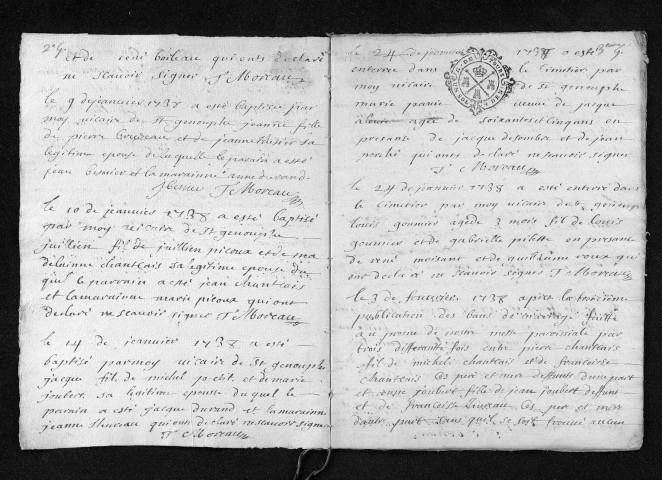 2e f.
et de rené boileau qui onts declaré
ne scavoir signer T Moreau
le 9 de jeanvier 1738 a esté baptisée par
moy vicaire de st genouphe jeanne fille
de pierre et de jeanne sa
legitime epouse de laquelle le parain a esté
jean besnier et la marainne anne durand
J besnier T Moreau
le 10 de jeanvier 1738 a esté baptisé
par moy vicaire de st genouphe
juillien fil de juillien picoux et de ma
delainne chantlais sa legitime epouse du
quel le parrain a esté jean chantlais
et la marainne marie picoux qui ont
declaré ne scavoir signer T Moreau
le 14 de jeanvier 1738 a esté
baptisé par moy vicaire de st genouphe
jacque fil de michel petit et de marie
joubert sa legitime epouse du quel le
parain a esté jacque durand et la marainne
jeanne fleuriau qui ont declaré ne scavoir signer
T Moreau
le 24 de jeanvier 1738 a esté
enterré dans le cimetier par
moy vicaire de st genouphe
marie veuve de jacque
agée de soixante et cinq ans en
presance de jacque desombre et de jean
qui ont declaré ne scavoir signer
T Moreau
le 24 de janvier 1738 a esté enterré dans
le cimetier par moy vicaire de st genouphe
louis gounier agé de 3 mois fil de louis
gounier et de gabrielle pilette en presance
de rené moisant et de guillaume roux qui
ont declaré ne scavoir signer T Moreau
le 3 de feuvrier 1738 apres la troisieme
publication des bans de mariage faitte
au prosne de nostre messe paroissiale par
trois differante fois entre piere chantlais
fil de michel chantlais et de francoise
chantlais ses pere et mere deffunts d'une part
et anne joubert fille de jean joubert deffunt
et de francoise ses pere et mere
d'autre part sans qu'il se soit trouvé aucun